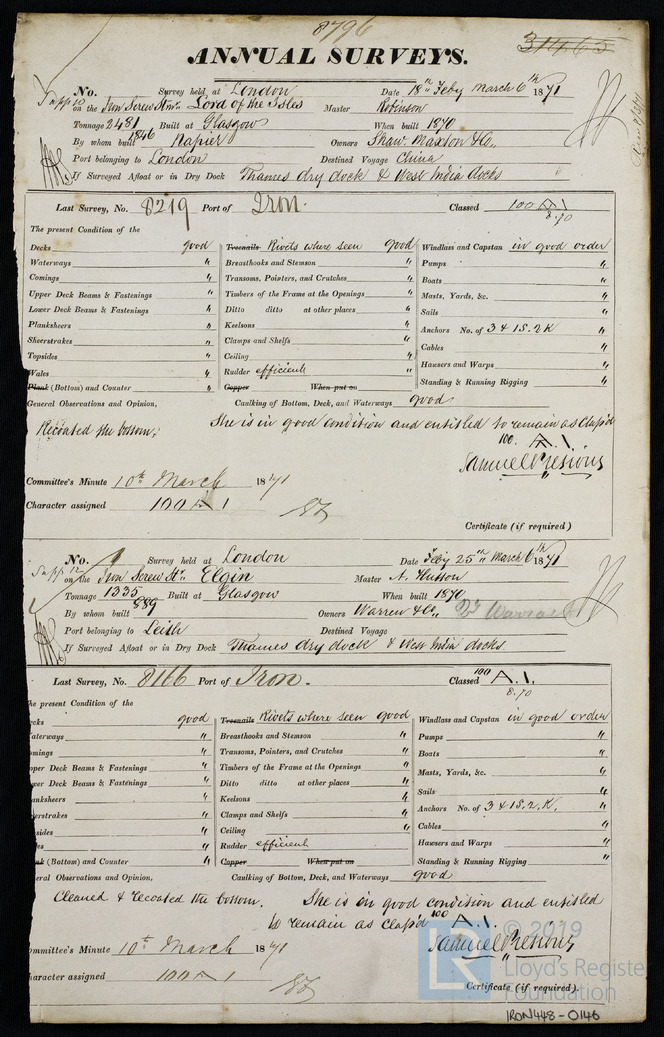 8796
31463
ANNUAL SURVEYS.
No. Survey held at London Date 18th Feby March 6th 1871
Supp 10 on the Iron Screw Stmr Lord of the Isles Master Robinson
Tonnage 2481 Built at Glasgow When built 1870
1846
By whom built Napier Owners Shaw. Maxton & Co,
Port belonging to London Destined Voyage China
If Surveyed Afloat or in Dry Dock Thames dry dock & West India docks
Last Survey, No. 8219 Port of Iron. Classed 100 A1
8.70
The present Condition of the
Decks good Treenails Rivets where seen good Windlass and Capstan in good order
Waterways " Breasthooks and Stemson " Pumps "
Comings " Transoms, Pointers, and Crutches " Boats "
Upper Deck Beams & Fastenings " Timbers of the Frame at the Openings " Masts, Yards, &c. "
Lower Deck Beams & Fastenings " Ditto ditto at other places " Sails "
Planksheers " Keelsons " Anchors No. of 3 & 1S. 2K "
Sheerstrakes " Clamps and Shelfs " Cables "
Topsides " Ceiling " Hawsers and Warps "
Wales " Rudder efficient " Standing & Running Rigging "
Plank (Bottom) and Counter " Copper When put on
General Observations and Opinion, Caulking of Bottom, Deck, and Waterways good
Recoated the bottom. She is in good condition and entitled to remain as Class'd
100 A.1.
Samuel Presious
Committee's Minute 10th March 1871
Character assigned 100 A 1
Certificate (if required)
No. Survey held at London Date Feby 25th March 6th 1871
Supp 12 on the Iron Screw Str. Elgin Master A. Hutson
Tonnage 1335 Built at Glasgow When built 1870
889
By whom built Owners Warren & Co,
Port belonging to Leith Destined Voyage
If Surveyed Afloat or in Dry Dock Thames dry dock & West India docks.
Last Survey, No. 8166 Port of Iron. Classed 100 A.1.
8.70
he present Condition of the
ecks good Treenails Rivets where seen good Windlass and Capstan in good order
aterways " Breasthooks and Stemson " Pumps "
omings " Transoms, Pointers, and Crutches " Boats "
pper Deck Beams & Fastenings " Timbers of the Frame at the Openings " Masts, Yards, &c. "
wer Deck Beams & Fastenings " Ditto ditto at other places " Sails "
anksheers " Keelsons " Anchors No. of 3 & 1S. 2.K. "
erstrakes " Clamps and Shelfs " Cables "
sides " Ceiling " Hawsers and Warps "
les " Rudder efficient " Standing & Running Rigging "
nk (Bottom) and Counter " Copper When put on
eral Observations and Opinion, Caulking of Bottom, Deck, and Waterways good
Cleaned & recoated the bottom. She is in good condition and entitled
to remain as class'd 100 A.1.
Samuel Presious
ommittee's Minute 10th March 1871
haracter assigned 100 A 1
Certificate (if required).
© 2019
LR Lloyd's Registe
Foundation
IRON448-0146